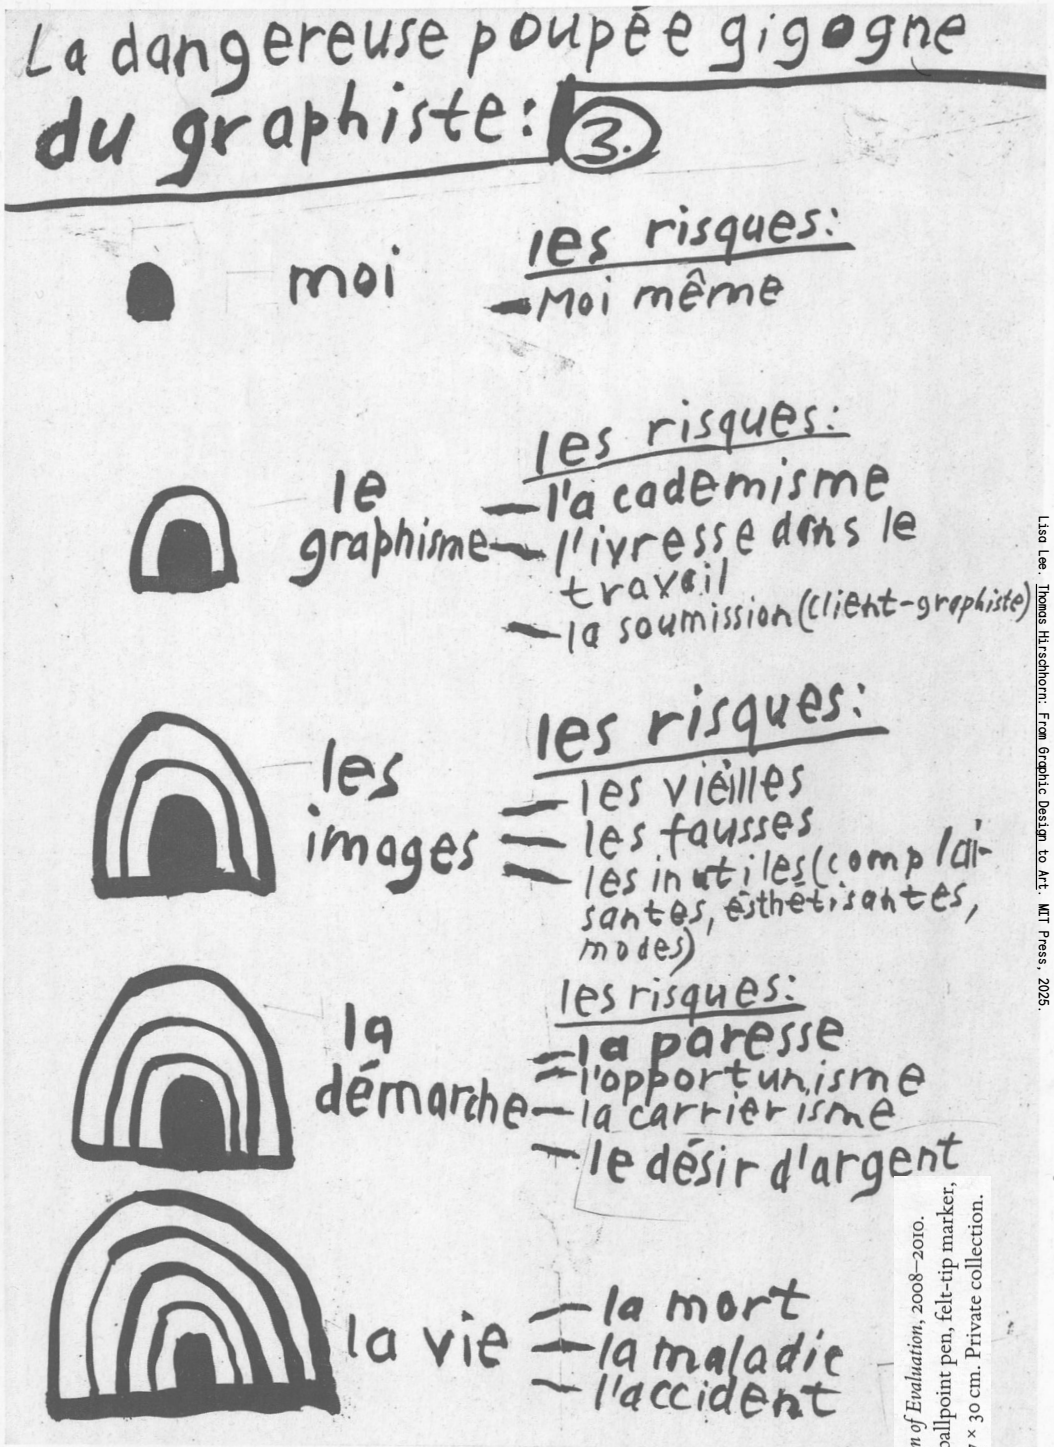 La dangereuse poupée gigogne
du graphiste: 3.
moi
les risques:
- Moi même
le
graphisme
les risques:
- l'academisme
- l'ivresse dans le
travail
- la soumission (client-graphiste)
les
images
les risques:
- les vieilles
- les fausses
- les inutiles (complai-
santes, esthétisantes,
modes)
la
démarche
les risques:
- la paresse
- l'opportunisme
- la carrierisme
- le désir d'argent
la vie
- la mort
- la maladie
- l'accident
Lisa Lee. Thomas Hirschhorn: From Graphic Design to Art. MIT Press, 2025.
of Evaluation, 2008–2010.
ballpoint pen, felt-tip marker,
× 30 cm. Private collection.